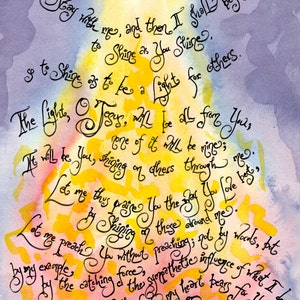 Stay with me, and then I shall be
to Shine as You Shine,
so to Shine as to be a Light for others.
The Light, O Jesus, will be all from You,
none of it will be mine;
It will be You, shining on others through me.
Let me thus praise You the way You love best,
by Shining on those around me.
Let me preach You without preaching; not by words, but
by my example,
by the catching force, the sympathetic influence of what I
heart bears